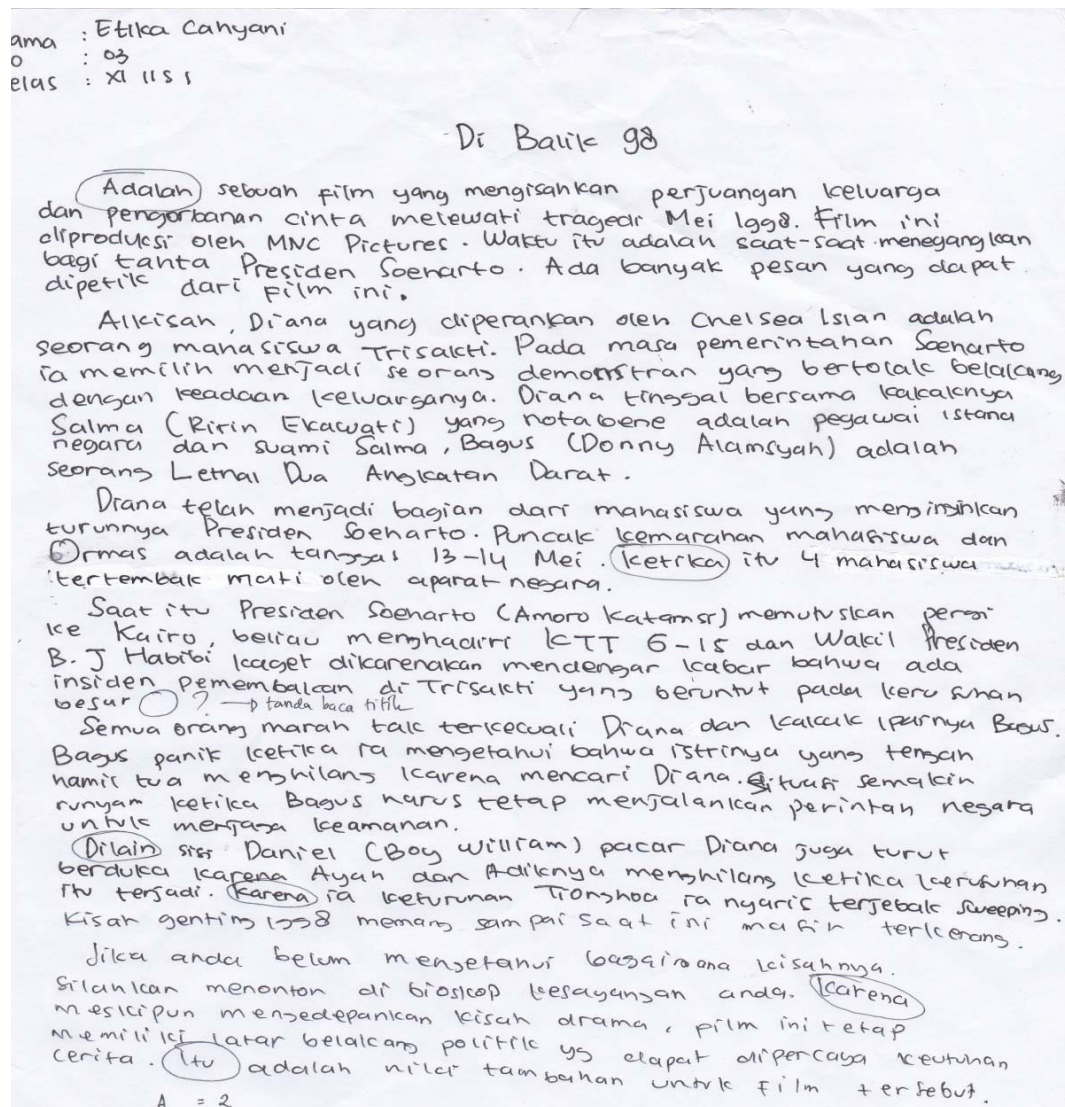 ama : Etika Cahyani
o : 03
elas : XI IIS 1
Di Balik 98
Adalah sebuah film yang mengisahkan perjuangan keluarga
dan pengorbanan cinta melewati tragedi Mei 1998. Film ini
diproduksi oleh MNC Pictures. Waktu itu adalah saat-saat menegangkan
bagi tahta Presiden Soeharto. Ada banyak pesan yang dapat
dipetik dari film ini.
Alkisah, Diana yang diperankan oleh Chelsea Islan adalah
seorang mahasiswa Trisakti. Pada masa pemerintahan Soeharto
ia memilih menjadi seorang demonstran yang bertolak belakang
dengan keadaan keluarganya. Diana tinggal bersama kakaknya
Salma (Ririn Ekawati) yang notabene adalah pegawai istana
negara dan suami Salma, Bagus (Donny Alamsyah) adalah
seorang Letnal Dua Angkatan Darat.
Diana telah menjadi bagian dari mahasiswa yang menginginkan
turunnya Presiden Soeharto. Puncak kemarahan mahasiswa dan
Ormas adalah tanggal 13-14 Mei. Ketika itu 4 mahasiswa
tertembak mati oleh aparat negara.
Saat itu Presiden Soeharto (Amoro Katamsi) memutuskan pergi
ke Kairo, beliau menghadiri KTT 6-15 dan Wakil Presiden
B. J Habibi kaget dikarenakan mendengar kabar bahwa ada
insiden pemembakan di Trisakti yang beruntut pada kerusuhan
besar ? → tanda baca titik
Semua orang marah tak terkecuali Diana dan kakak iparnya Bagus.
Bagus panik ketika ia mengetahui bahwa istrinya yang tengah
hamil tua menghilang karena mencari Diana. Situasi semakin
runyam ketika Bagus harus tetap menjalankan perintah negara
untuk menjaga keamanan.
Dilain sisi Daniel (Boy William) pacar Diana juga turut
berduka karena Ayah dan Adiknya menghilang ketika kerusuhan
itu terjadi. Karena ia keturunan Tionghoa ia nyaris terjebak sweeping.
Kisah genting 1998 memang sampai saat ini masih terkenang.
Jika anda belum mengetahui bagaimana kisahnya.
Silahkan menonton di bioskop kesayangan anda. Karena
meskipun mengedepankan kisah drama, film ini tetap
memiliki latar belakang politik yg dapat dipercaya keutuhan
cerita. Itu adalah nilai tambahan untuk film tersebut.
A = 2